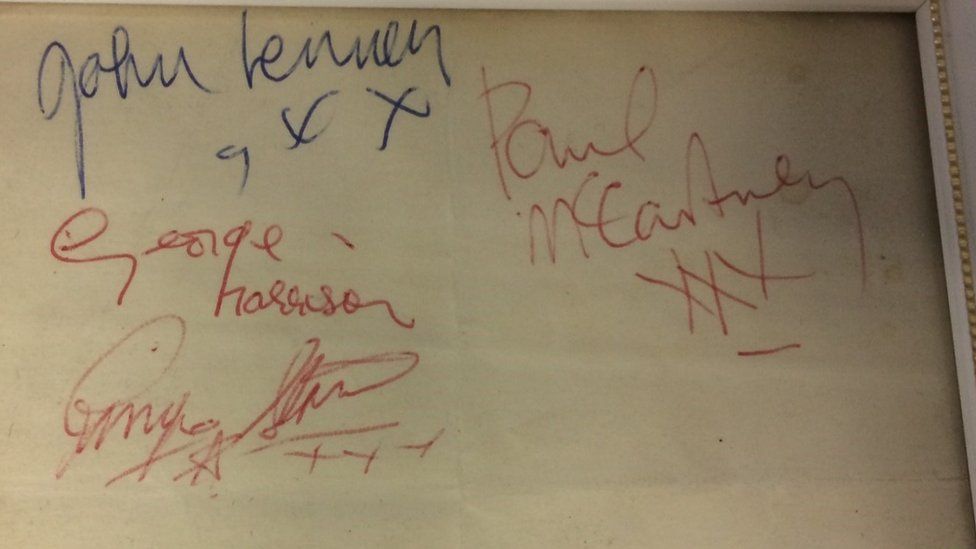 John Lennon
xx
George
Harrison
Ringo Starr
xxx
Paul
McCartney
XXX